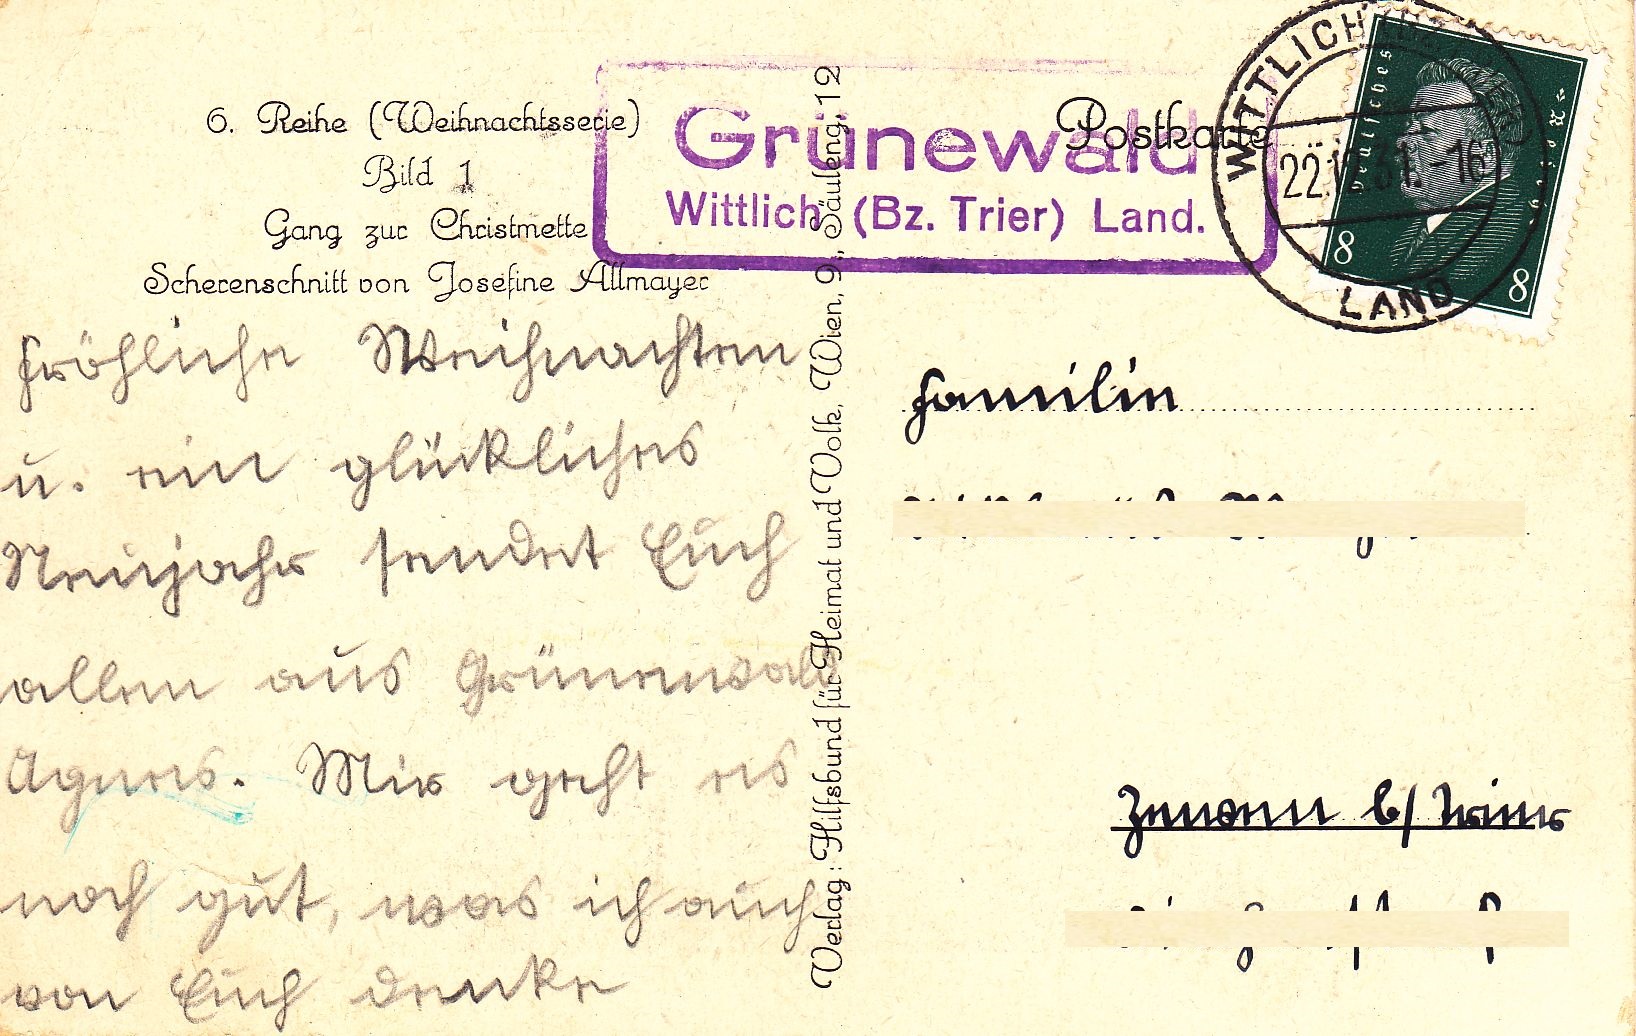 6. Reihe (Weihnachtsserie)
Bild 1
Gang zur Christmette
Scherenschnitt von Josefine Allmayer
Fröhliche Weihnachten
u. ein glückliches
Neujahr sendet Euch
allen aus Grünenwald
Agnes. Mir geht es
noch gut, was ich auch
von Euch denke
Verlag: Hilfsbund für Heimat und Volk, Wien, 9., Säuleng. 12
Grünewald
Wittlich (Bz. Trier) Land.
Postkarte
WITTLICH
22.12.31.-16
LAND
Deutsches
8
8
Familie
Zewen b/Trier